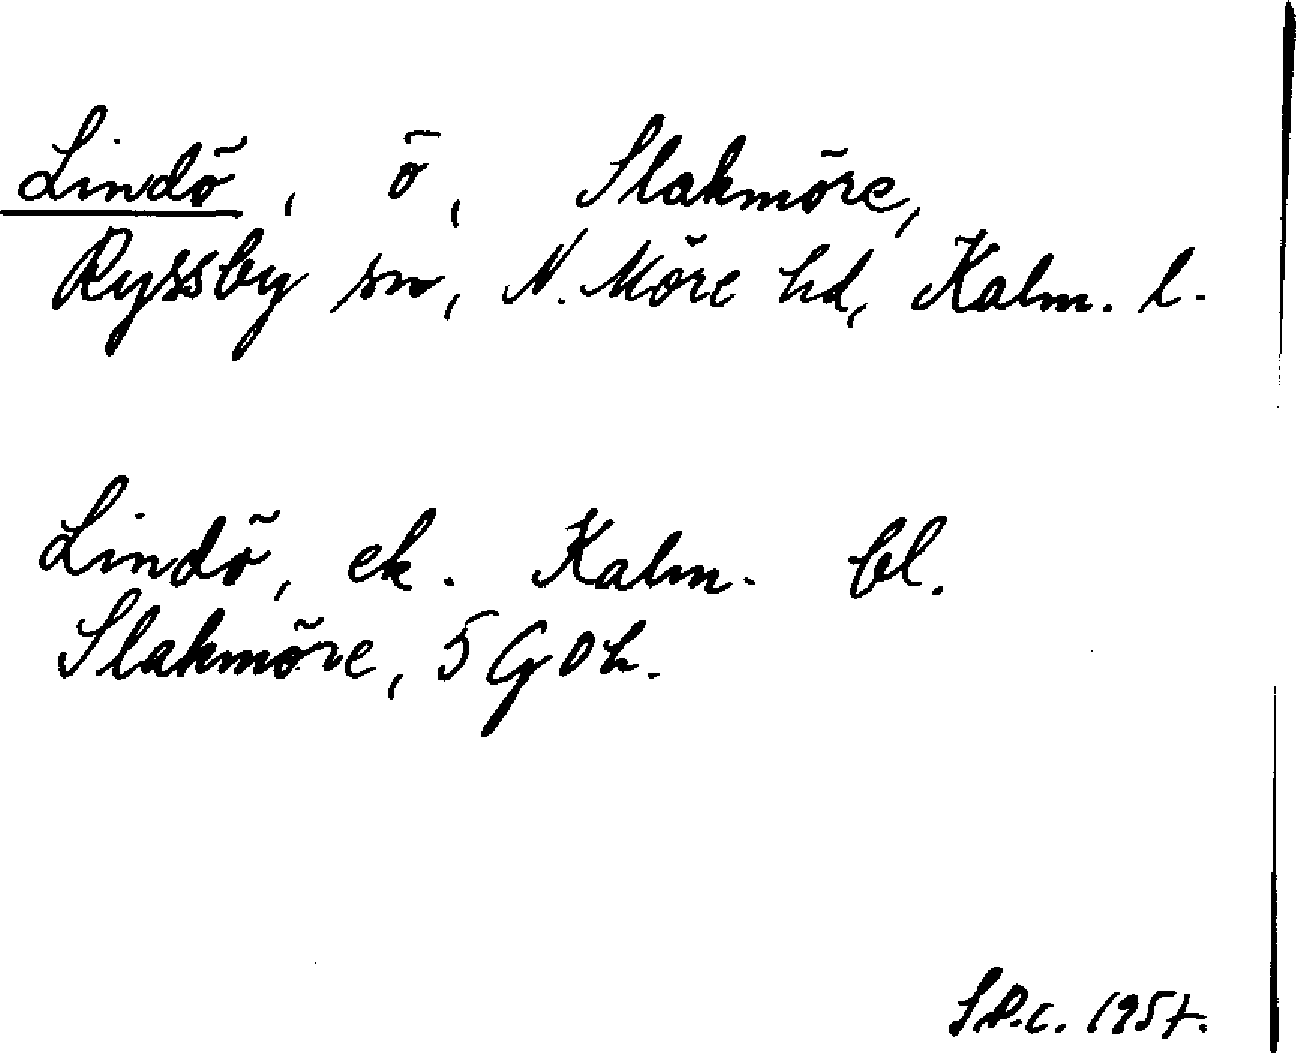 Lindö, ö, Slakmöre,
Ryssby sn, N. Möre hd, Kalm. l.
Lindö, ek. Kalm. bl.
Slakmöre, 5 G 0 h.
1957.